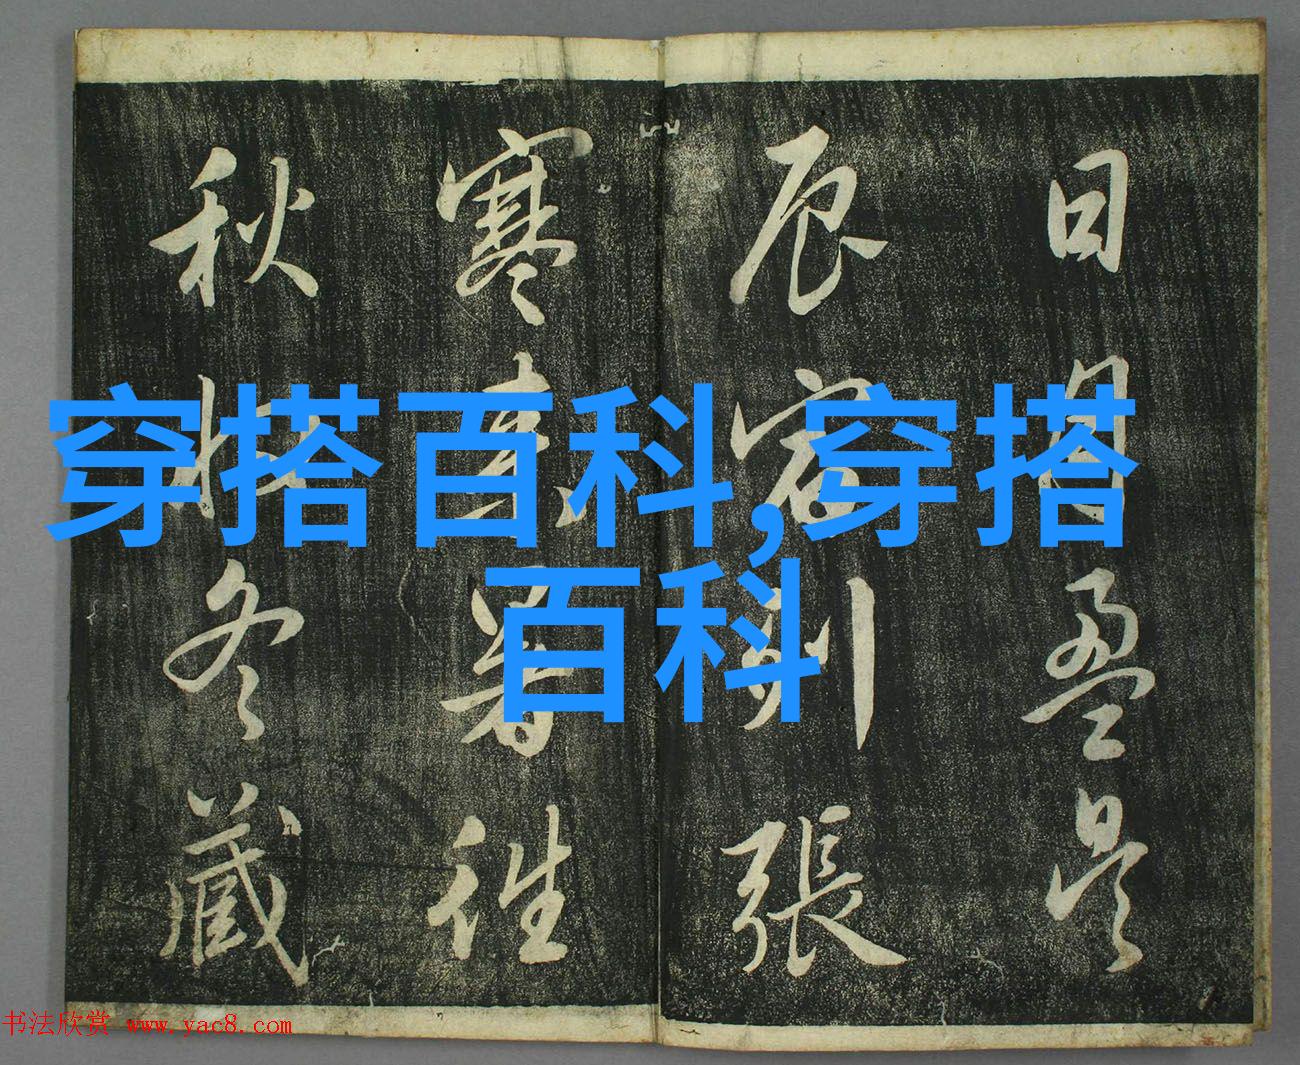 日月盈昃
辰宿列張
寒来暑往
秋收冬藏
穿搭百科,穿搭
百科
书法欣赏 www.yac8.com